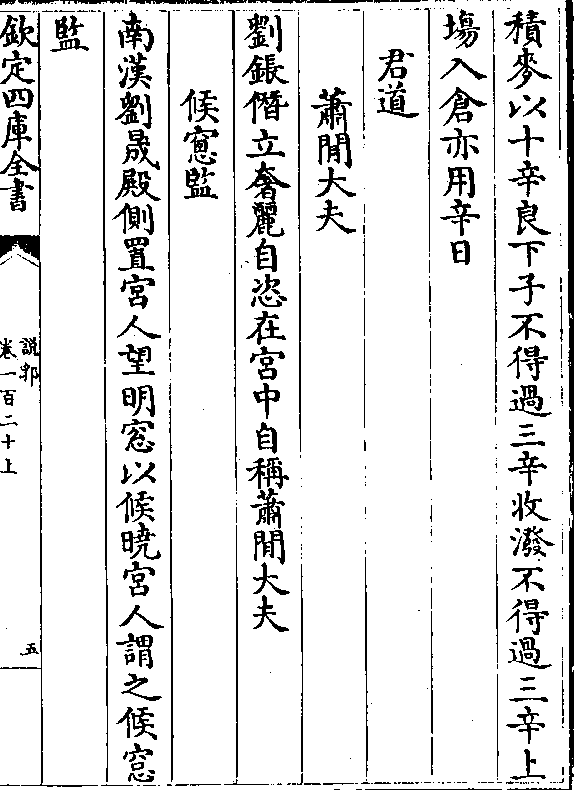 積麥以十辛良下子不得過三辛收潑不得過三辛上
塲入倉亦用辛日
君道
蕭閒大夫
劉鋹僭立奢麗自恣在宮中自稱蕭閒大夫
候窻監
南漢劉晟殿側置宮人望明窓以候曉宮人謂之候窓
監
欽定四庫全書
說郛
卷一百二十上
五